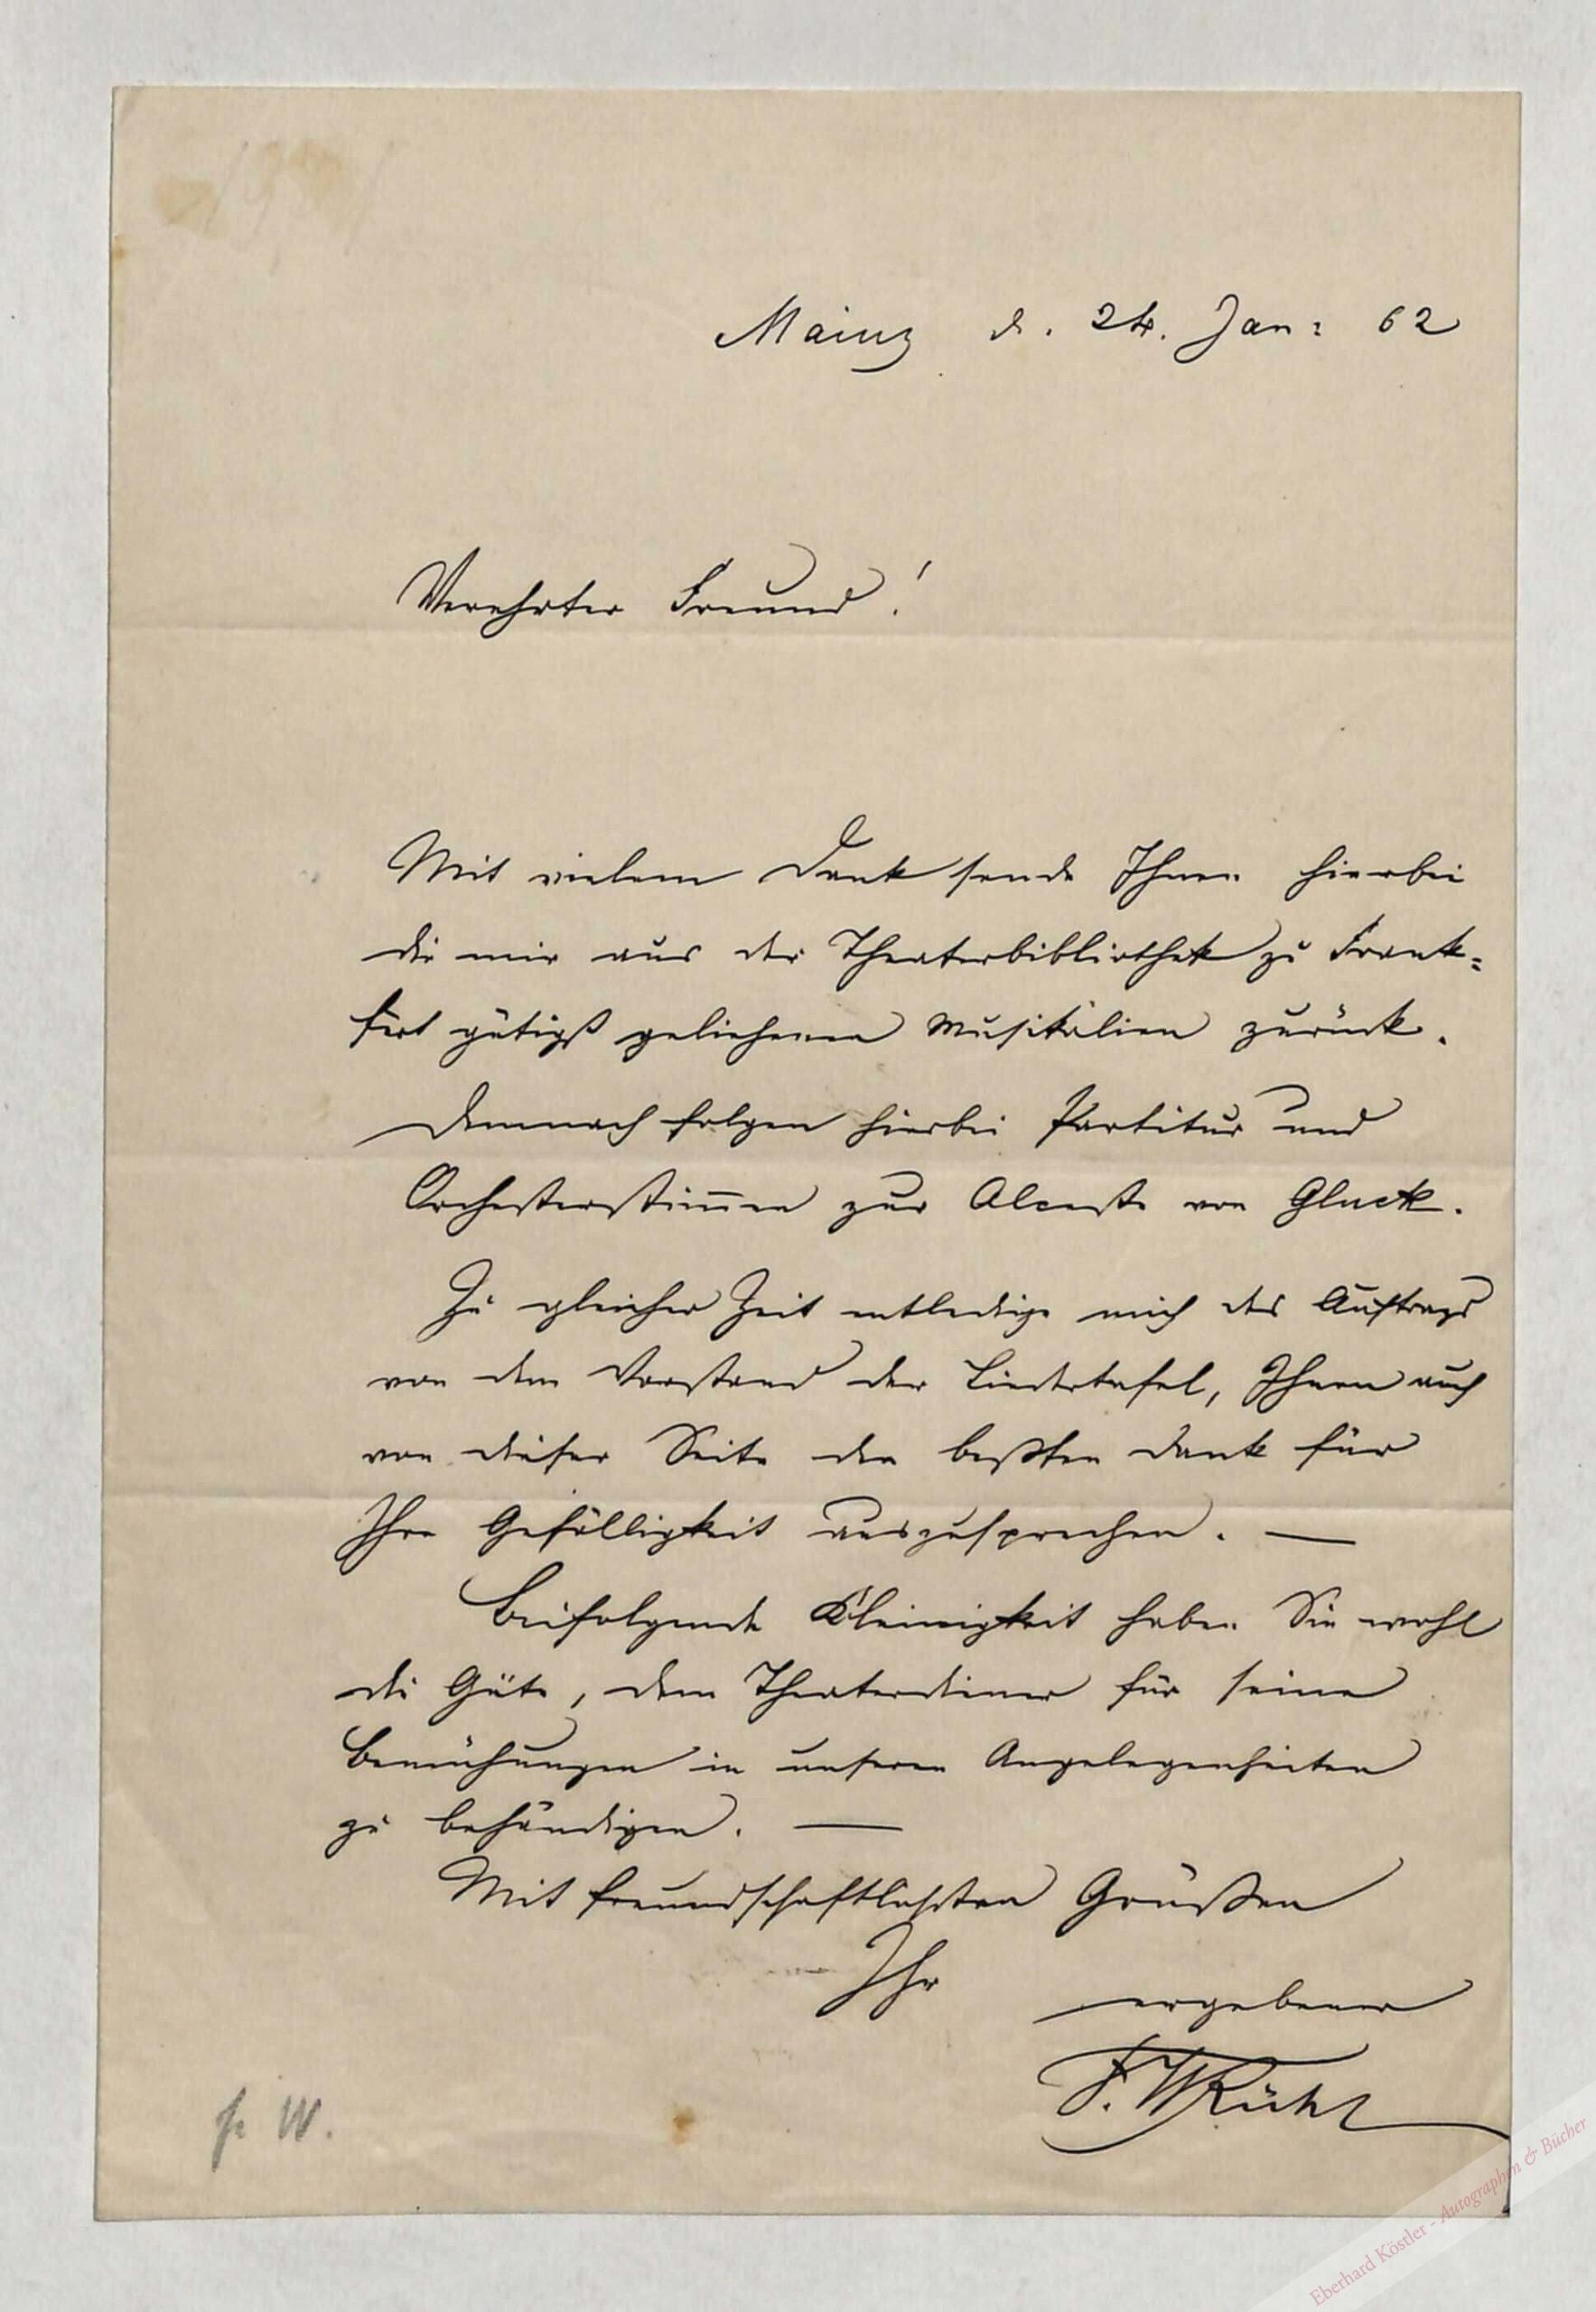 Mainz d. 24. Jan: 62
Verehrter Freund!
Mit vielem Dank sende Ihnen hierbei
die mir aus der Theaterbibliothek zu Frank=
furt gütigst geliehenen Musikalien zurück.
Demnach folgen hierbei Partitur und
Orchesterstim̅en zur Alceste von Gluck.
Zu gleicher Zeit entledige mich des Auftrags
von dem Vorstand der Liedertafel, Ihnen auch
von dieser Seite den beßten Dank für
Ihre Gefälligkeit auszusprechen. —
Beifolgende Kleinigkeit haben Sie wohl
die Güte, dem Theaterdiener für seine
Bemühungen in unseren Angelegenheiten
zu behändigen. —
Mit freundschaftlichsten Grüßen
Ihr ergebener
F. W Rühl
W.
Eberhard Köstler - Autographen & Bücher